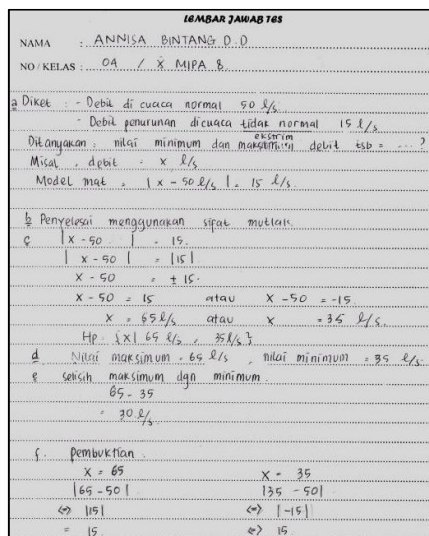 LEMBAR JAWAB TES
NAMA : ANNISA BINTANG D.D
NO / KELAS : 04 / X MIPA 8
a Diket : - Debit di cuaca normal 50 l/s
- Debit penurunan dicuaca tidak normal 15 l/s
ekstrim
Ditanyakan : nilai minimum dan debit tsb = .... ?
Misal , debit = x l/s
Model mat = | x - 50 l/s | = 15 l/s.
b Penyelesai menggunakan sifat mutlak.
c | x - 50 | = 15.
| x - 50 | = |15|
x - 50 = ± 15.
x - 50 = 15 atau x - 50 = -15.
x = 65 l/s atau x = 35 l/s.
Hp . {x| 65 l/s , 35 l/s }
d Nilai maksimum = 65 l/s , nilai minimum = 35 l/s.
e selisih maksimum dgn minimum.
65 - 35
= 30 l/s
f. Pembuktian .
x = 65 x = 35
|65 - 50| |35 - 50|
<=> |15| <=> |-15|
= 15 <=> 15